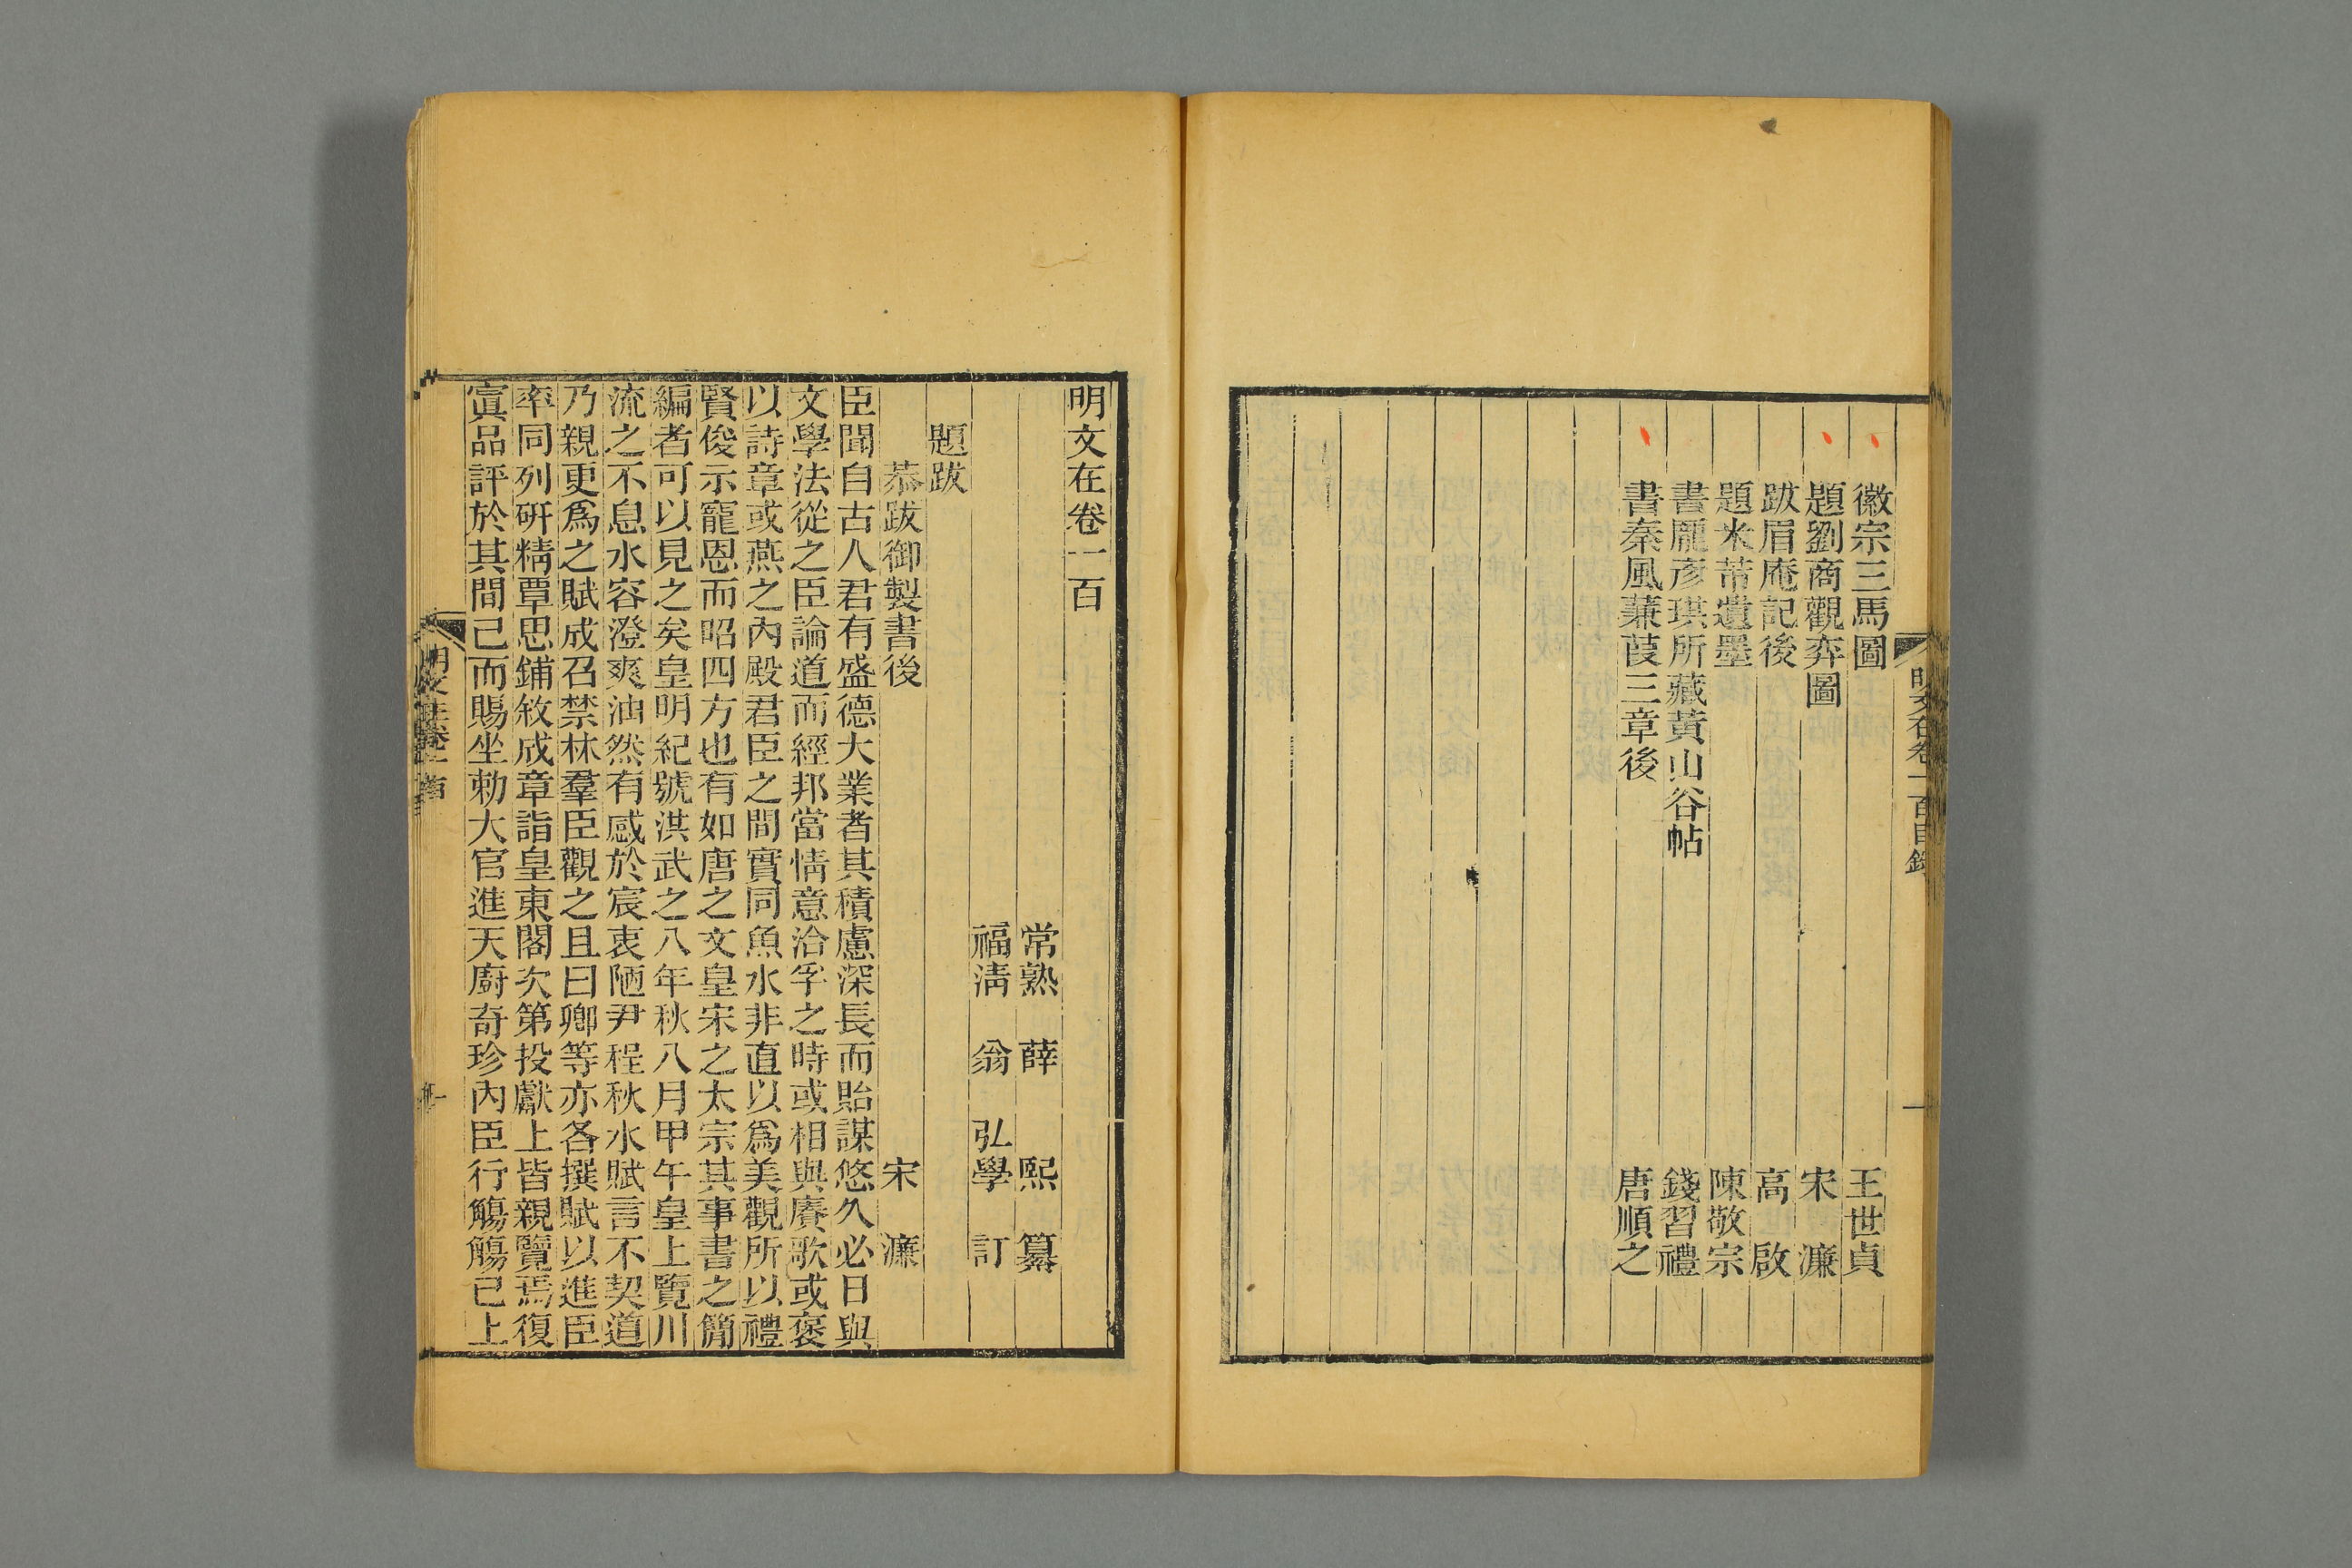 明文在卷一百目錄
一
徽宗三馬圖　王世貞
題劉商觀弈圖　宋濂
跋眉庵記後　高啟
題米芾遺墨　陳敬宗
書龐彥琪所藏黃山谷帖　錢習禮
書秦風蒹葭三章後　唐順之
明文在卷一百
常熟　薛　熙　纂
福淸　翁　弘學　訂
題跋
恭跋御製書後　宋　濂
臣聞自古人君有盛德大業者其積慮深長而貽謀悠久必日與
文學法從之臣論道而經邦當情意洽孚之時或相與賡歌或褒
以詩章或燕之內殿君臣之間實同魚水非直以爲美觀所以禮
賢俊示寵恩而昭四方也有如唐之文皇宋之太宗其事書之簡
編者可以見之矣皇明紀號洪武之八年秋八月甲午皇上覽川
流之不息水容澄爽油然有感於宸衷陋尹程秋水賦言不契道
乃親更爲之賦成召禁林羣臣觀之且曰卿等亦各撰賦以進臣
率同列研精覃思鋪敘成章詣皇東閣次第投獻上皆親覽焉復
寘品評於其間已而賜坐勅大官進天廚奇珍內臣行觴觴已上
明文在卷一百